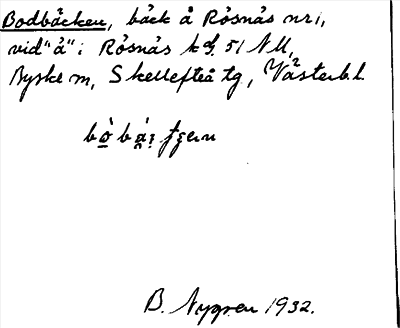 Bodbäcken, bäck å Rösnäs nr 1,
vid "å" i Rösnäs k d, 51 NU,
Byske m, Skellefteå tg, Västerb. l.
B. Nygren 1932.